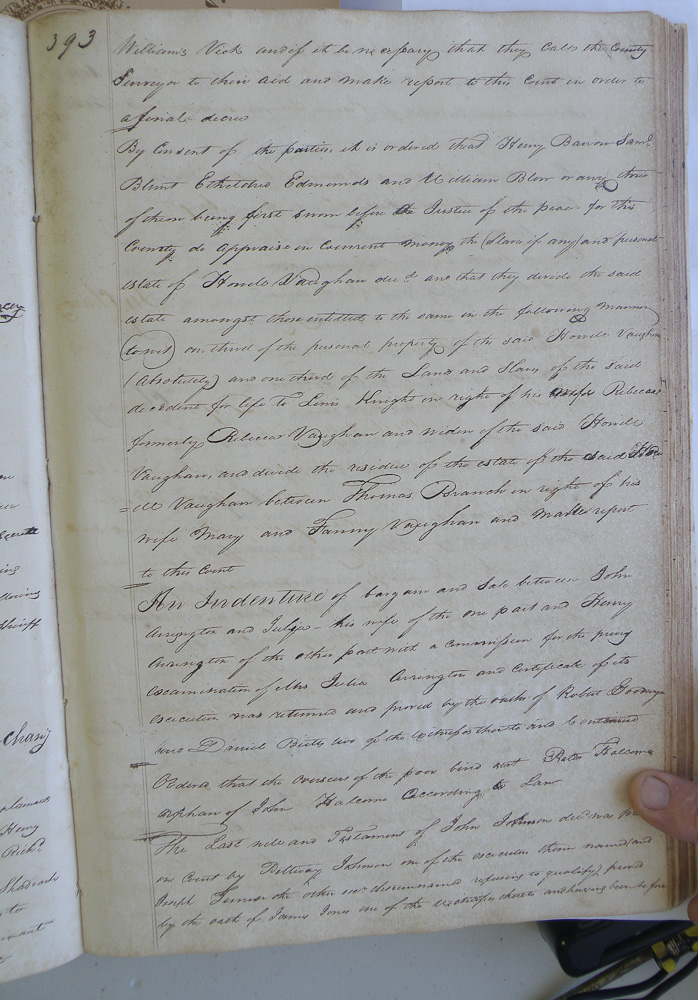 393
Williams Vick and if it be necessary that they call the County
Surveyor to their aid and make report to this Court in order to
a final decree
By Consent of the parties, it is ordered that Henry Barrow Saml.
Blunt Etheldred Edmunds and William Blow or any three
of them being first sworn before a Justice of the peace for this
County do appraise in Current money the (Slaves if any) and personal
estate of Howell Vaughan decd. and that they divide the said
estate amongst those entitled to the same in the following manner
(towit) one third of the personal property of the said Howell Vaughan
(Absolutely) and one third of the Land and Slaves of the said
decedent for life to Lewis Knight in right of his wife Rebecca
formerly Rebecca Vaughan and widow of the said Howell
Vaughan, and divide the residue of the estate of the said How
=ell Vaughan between Thomas Branch in right of his
wife Mary and Fanny Vaughan and make report
to this Court
An Indenture of bargain and Sale between John
Arrington and Julia his wife of the one part and Henry
Arrington of the other part with a commission for the privy
examination of Mrs Julia Arrington and Certificate of its
execution was returned and proved by the oaths of Robert Goodwyn
and Daniel two of the witnesses thereto and Continued
Ordered that the overseers of the poor bind out
orphan of John according to Law
The Last will and Testament of John Johnson decd was
in Court by Johnson one of the executors therein named and
Joseph the other exr. therein named refusing to qualify, proved
by the oath of James Jones one of the witnesses thereto and having been